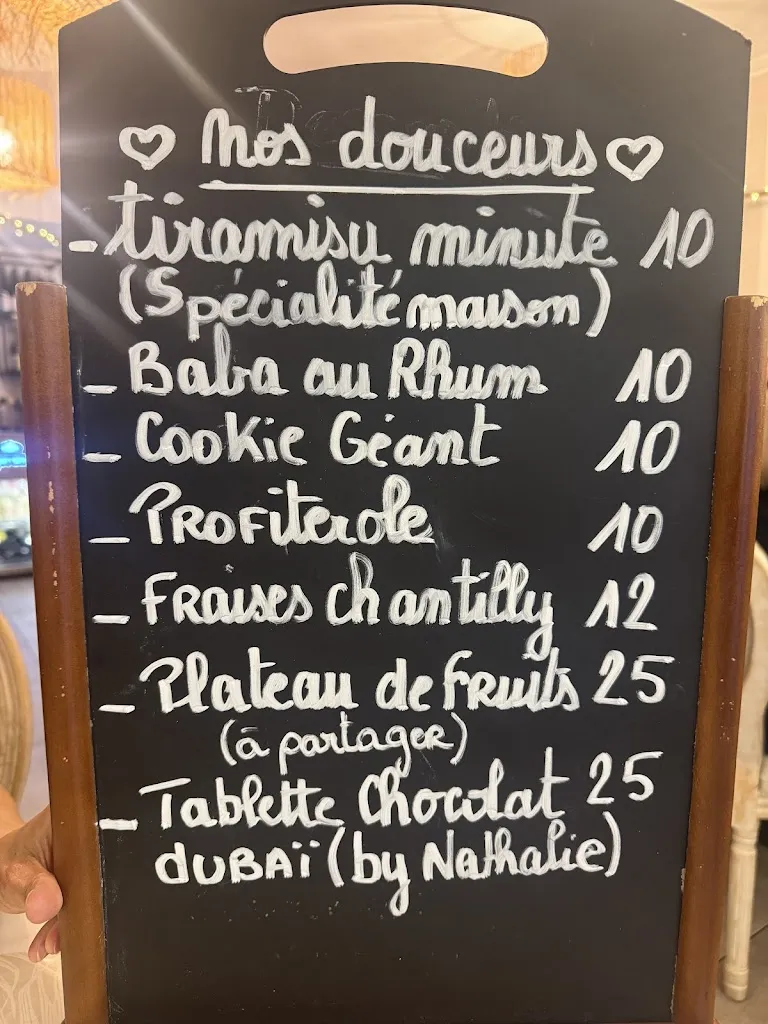 ♡ Nos douceurs ♡
- tiramisu minute 10
(Spécialité maison)
- Baba au Rhum 10
- Cookie Géant 10
- PROFiterole 10
- FRaises chantilly 12
- Plateau de fruits 25
(à partager)
- Tablette Chocolat 25
DUBAÏ (by Nathalie)